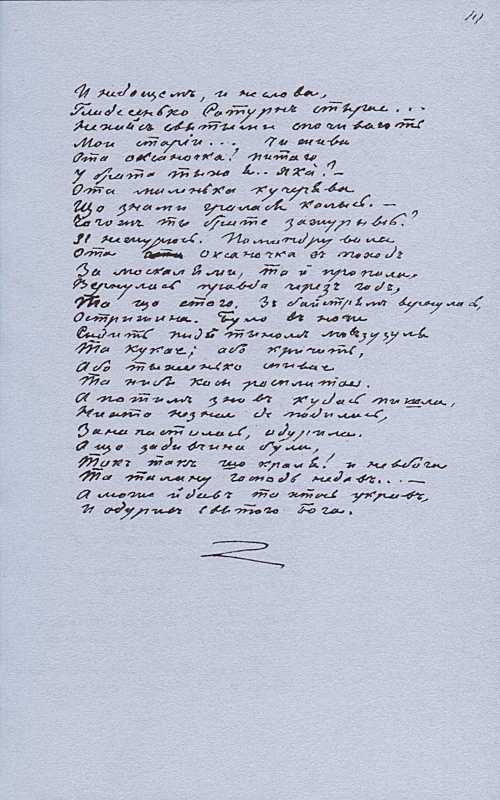 И недощемъ, и неслова,
Гладесенько Сатурнъ стырае...
Нехайзъ святыми спочивають
Мои старіи... Чи жива
Ота оксаночка? питаю
У брата тыхо я.. Яка? —
Ота маленька кучерява
Що знами гралась колысь. —
Чогожъ ты брате зажурывсь?
Я нежурюсь. Помандрувала
Ота оксаночка въ походъ
За москалями, та й пропала.
Вернулась правда черезъ годъ,
Та що зтого. Зъ байстрямъ вернулась,
Острижина. Було в ночи
Сыдить підъ тиномъ мовзузуля
Та кукає, або кричить,
Або тыхенько спивае
Та нибы косы росплитае.
А потимъ зновъ кудась пишла,
Нихто незнае де подилась,
Занапастилась, одурила.
А що задывчина була,
Такъ такъ що краля! и невбога
Та талану господь недавъ... —
А може й давъ та хтось укравъ,
И одуривъ святого Бога.